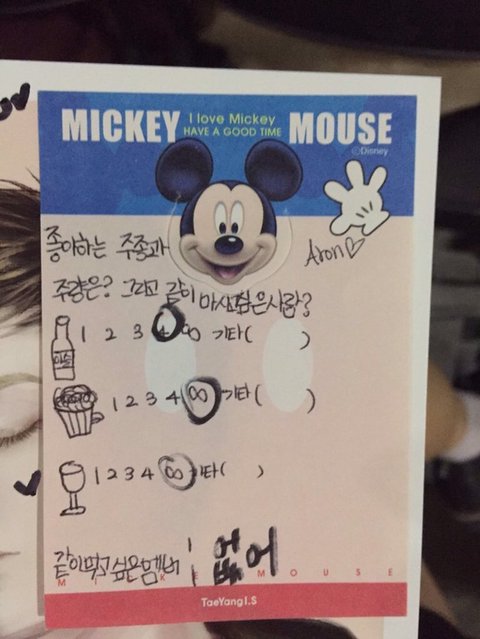 I love Mickey
MICKEY HAVE A GOOD TIME MOUSE
©Disney
좋아하는 주종과
Aron♡
주량은? 그리고 같이 마시고싶은사람?
1 2 3 4 ∞ 기타( )
1 2 3 4 ∞ 기타( )
1 2 3 4 ∞ 기타( )
같이먹고싶은멤버 없어
MICKEY MOUSE
TaeYang I.S